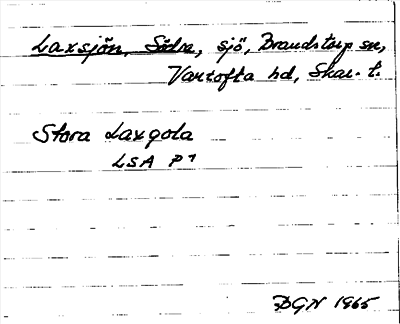 Laxsjön, Södra, sjö, Brandstorp sn,
Vartofta hd, Skar. l.
Stora Laxgola
LSA P 7
DGN 1965